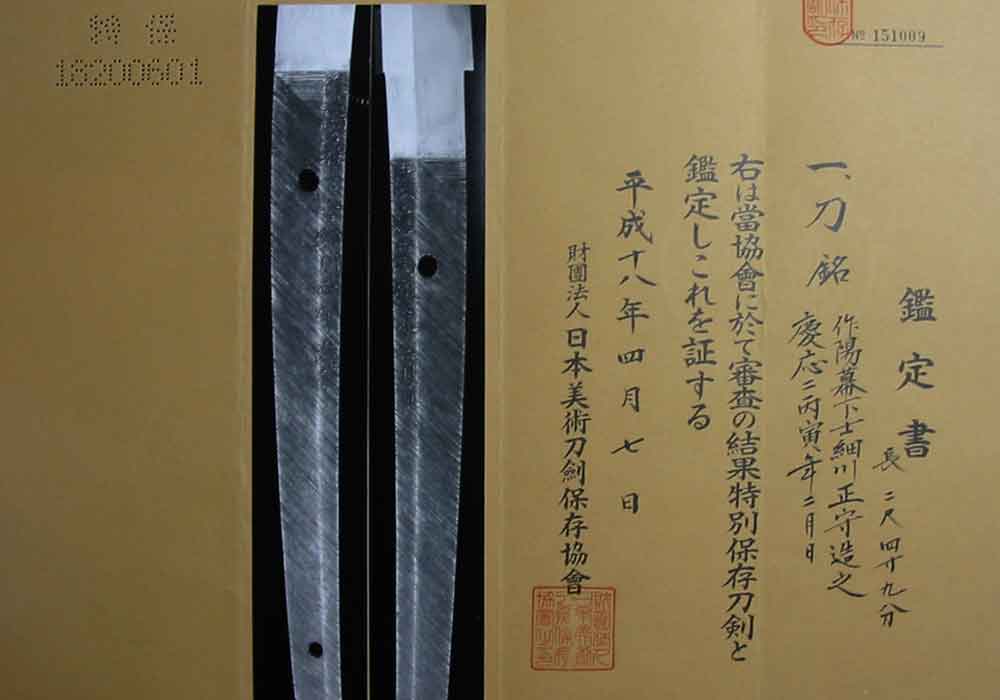 特保
13200601
№ 151009
鑑定書
長二尺四寸九分
一、刀 銘
作陽幕下士細川正守造之
慶応二丙寅年二月日
右は當協會に於て審査の結果特別保存刀剣と
鑑定しこれを証する
平成十八年四月七日
財團法人日本美術刀劍保存協會